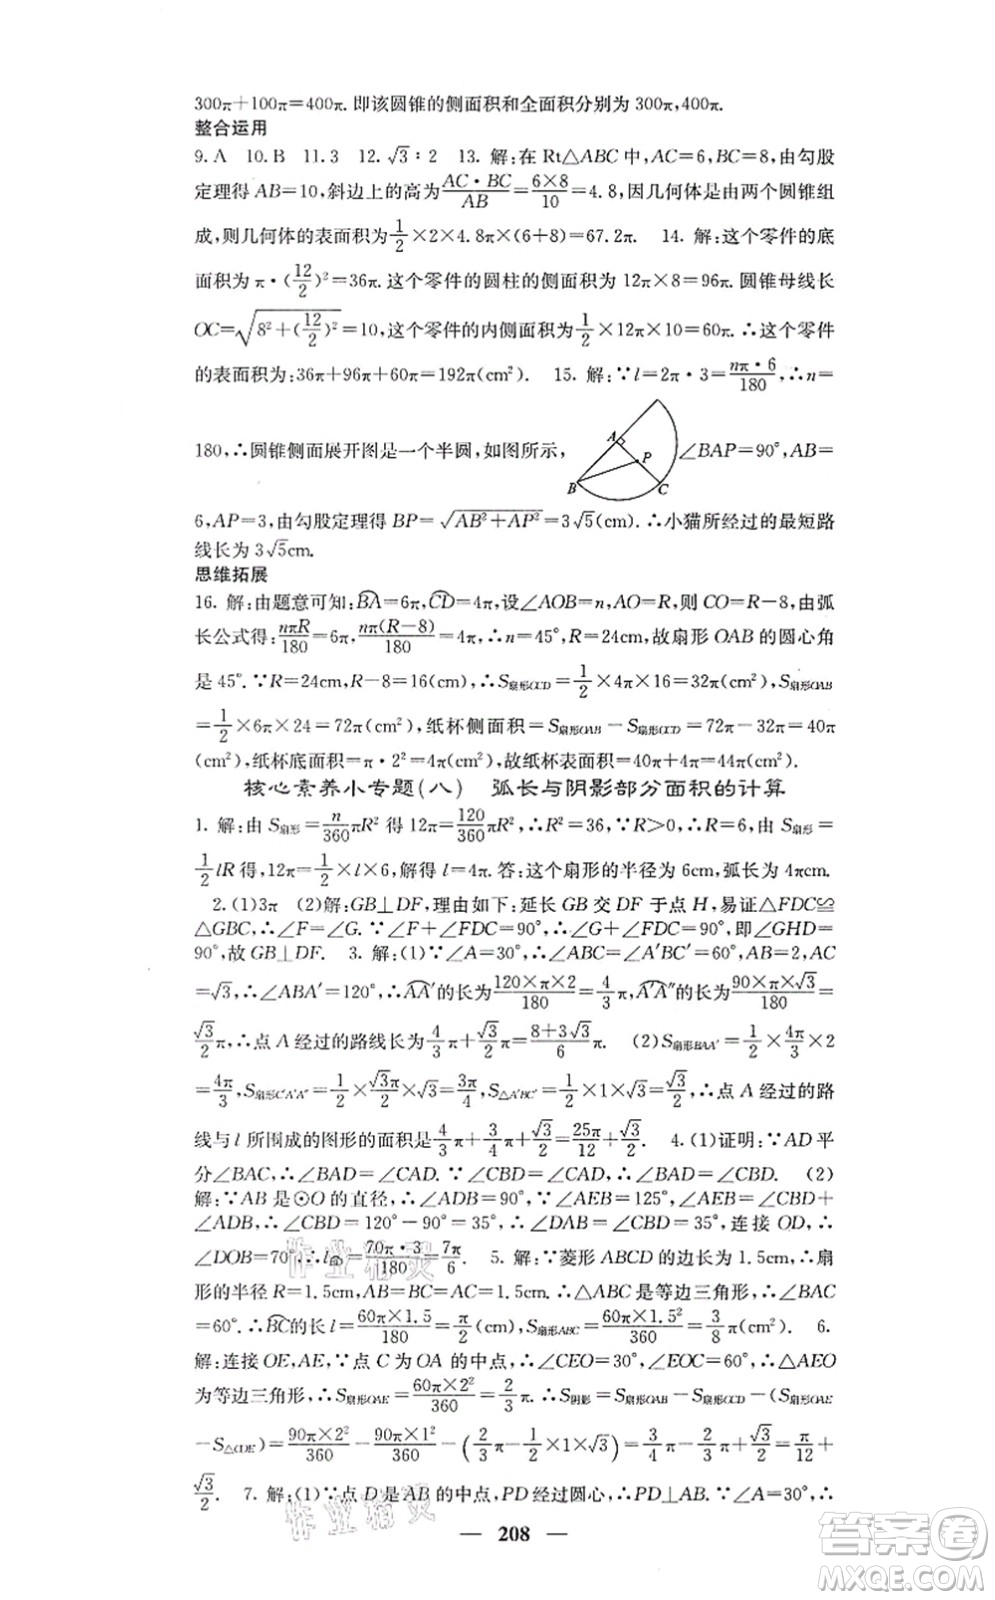 300π+100π=400π. 即该圆锥的侧面积和全面积分别为 300π,400π.
整合运用
9. A 10. B 11. 3 12. √3∶2 13. 解:在 Rt△ABC 中,AC=6,BC=8,由勾股
定理得 AB=10,斜边上的高为 AC·BC/AB = 6×8/10 =4.8,因几何体是由两个圆锥组
成,则几何体的表面积为 1/2 ×2×4.8π×(6+8)=67.2π. 14. 解:这个零件的底
面积为 π·(12/2)²=36π. 这个零件的圆柱的侧面积为 12π×8=96π. 圆锥母线长
OC=√(8²+(12/2)²)=10,这个零件的内侧面积为 1/2 ×12π×10=60π. ∴这个零件
的表面积为:36π+96π+60π=192π(cm²). 15. 解:∵l=2π·3= nπ·6/180 ,∴n=
180,∴圆锥侧面展开图是一个半圆,如图所示, ∠BAP=90°,AB=
A
P
B
C
6,AP=3,由勾股定理得 BP=√(AB²+AP²)=3√5(cm). ∴小猫所经过的最短路
线长为 3√5cm.
思维拓展
16. 解:由题意可知:BA=6π,CD=4π,设∠AOB=n,AO=R,则 CO=R-8,由弧
长公式得: nπR/180 =6π, nπ(R-8)/180 =4π,∴n=45°,R=24cm,故扇形 OAB 的圆心角
是 45°. ∵R=24cm,R-8=16cm,∴S扇形OCD= 1/2 ×4π×16=32π(cm²),S扇形OAB
= 1/2 ×6π×24=72π(cm²),纸杯侧面积=S扇形OAB-S扇形OCD=72π-32π=40π
(cm²),纸杯底面积=π·2²=4π(cm²),故纸杯表面积=40π+4π=44π(cm²).
核心素养小专题(八) 弧长与阴影部分面积的计算
1. 解:由 S扇形= n/360 πR² 得 12π= 120/360 πR²,∴R²=36,∵R>0,∴R=6,由 S扇形=
1/2 lR 得,12π= 1/2 ×l×6,解得 l=4π. 答:这个扇形的半径为 6cm,弧长为 4πcm.
2. (1)3π (2)解:GB⊥DF,理由如下:延长 GB 交 DF 于点 H,易证△FDC≌
△GBC,∴∠F=∠G. ∵∠F+∠FDC=90°,∴∠G+∠FDC=90°,即∠GHD=
90°,故 GB⊥DF. 3. 解:(1)∵∠A=30°,∴∠ABC=∠A′BC′=60°,AB=2,AC
=√3,∴∠ABA′=120°,∴AA′的长为 120×π×2/180 = 4/3 π,A′A″的长为 90×π×√3/180 =
√3/2 π,∴点 A 经过的路线长为 4/3 π+ √3/2 π= 8+3√3/6 π. (2)S扇形BAA′= 1/2 × 4π/3 ×2
= 4π/3 ,S扇形C′A′A″= 1/2 × √3/2 π×√3= 3π/4 ,S△A′BC′= 1/2 ×1×√3= √3/2 ,∴点 A 经过的路
线与 l 所围成的图形的面积是 4/3 π+ 3/4 π+ √3/2 = 25π/12 + √3/2 . 4. (1)证明:∵AD 平
分∠BAC,∴∠BAD=∠CAD. ∵∠CBD=∠CAD,∴∠BAD=∠CBD. (2)
解:∵AB 是⊙O 的直径,∴∠ADB=90°,∵∠AEB=125°,∠AEB=∠CBD+
∠ADB,∴∠CBD=120°-90°=35°,∴∠DAB=∠CBD=35°,连接 OD,∴
∠DOB=70°,∴l= 70π·3/180 = 7π/6 . 5. 解:∵菱形 ABCD 的边长为 1.5cm,∴扇
形的半径 R=1.5cm,AB=BC=AC=1.5cm. ∴△ABC 是等边三角形,∴∠BAC
=60°. ∴BC的长 l= 60π×1.5/180 = π/2 (cm),S扇形ABC= 60π×1.5²/360 = 3/8 π(cm²). 6.
解:连接 OE,AE,∵点 C 为 OA 的中点,∴∠CEO=30°,∠EOC=60°,∴△AEO
为等边三角形,∴S扇形OAE= 60π×2²/360 = 2/3 π,∴S阴影=S扇形OAB-S扇形OCD-(S扇形OAE
-S△COE)= 90π×2²/360 - 90π×1²/360 -( 2π/3 - 1/2 ×1×√3)= 3/4 π- 2/3 π+ √3/2 = π/12 +
√3/2 . 7. 解:(1)∵点 D 是 AB 的中点,PD 经过圆心,∴PD⊥AB. ∵∠A=30°,∴
— 208 —
作业精灵
作业精灵
答案圈
MXQE.COM